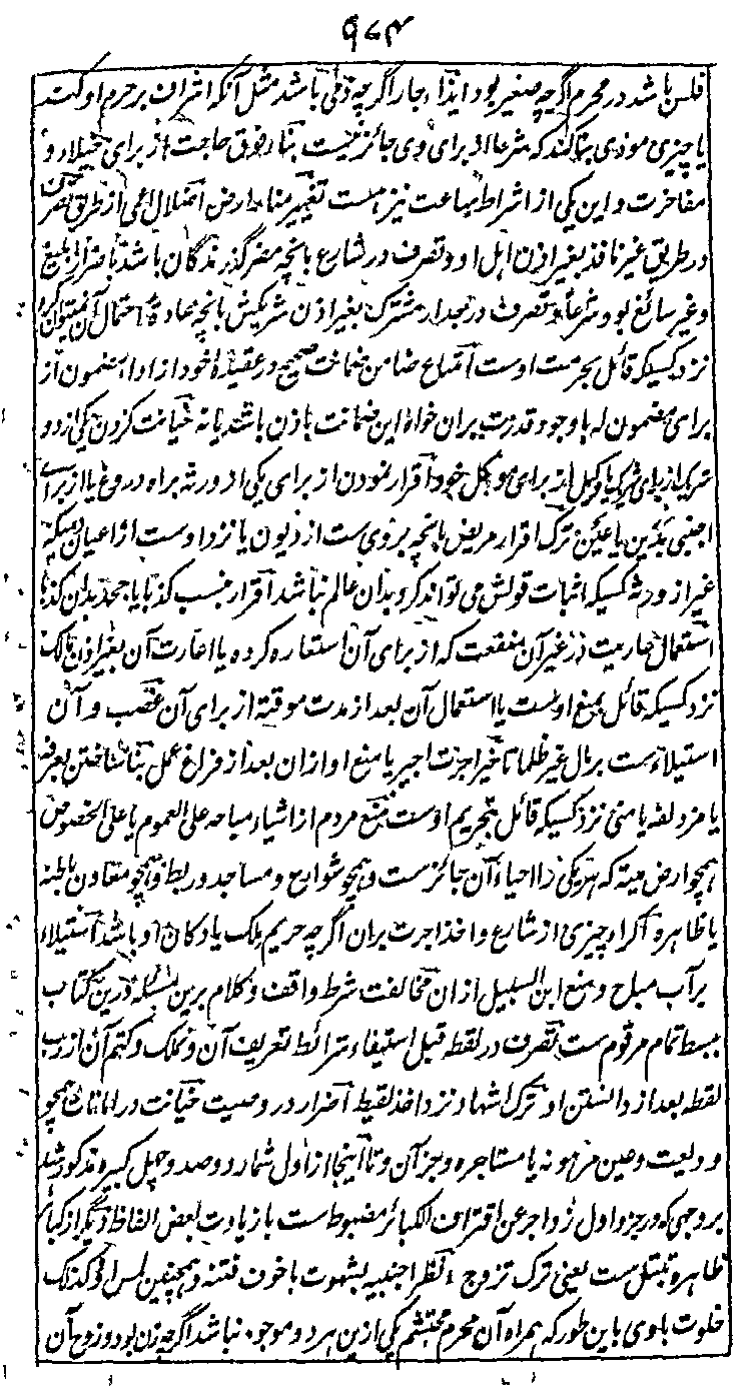 ۹۷۴
فلس باشد در محرم اگرچه صغیر بود ایذاء جار اگرچه ذمی باشد مثل آنکه اشراف بر حرم او کند
یا چیزی موذی بنا کند که شرعا از برای وی جائز نیست بنا فوق حاجت از برای خیلاء و
مفاخرت و این یکی از اشراط ساعت نیز هست تغییر منار ارض اضلال اعمی از طریق تصرف
در طریق غیر نافذ بغیر اذن اهل او و تصرف در شارع بانچه مضر گذرندگان باشد باضرار بلیغ
و غیر سائغ بود شرعا و تصرف در جدار مشترک بغیر اذن شریکش بانچه عادة احتمال آن نمیتوان کرد
نزد کسیکه قائل بحرمت اوست امتناع ضامن ضمانت صحیح در عقیدهٔ خود از ادا مضمون از
برای مضمون له با وجود قدرت بران خواه این ضمانت باذن باشد یا نه خیانت کردن یکی از دو
شریک از برای شریک یا وکیل از برای موکل خود اقرار نمودن از برای یکی از ورثه براه دروغ یا از برای
اجنبی بدین یا عین ترک اقرار مریض بانچه بر وی ست از دیون یا نزد اوست از اعیان وقتیکه
غیر از ورثه کسیکه اثبات قولش می تواند کرد بدان عالم نباشد اقرار بنسب کذبا یا جحد بدان کذبا
استعمال عاریت در غیر آن منفعت که از برای آن استعاره کرده یا اعارت آن بغیر اذن مالک
نزد کسیکه قائل بمنع اوست یا استعمال آن بعد از مدت موقتة از برای آن غصب و آن
استیلاء ست بر مال غیر ظلما تاخیر اجرت اجیر یا منع او ازان بعد از فراغ عمل بنا ساختن بعرفه
یا مزدلفه یا منی نزد کسیکه قائل بتحریم اوست منع مردم از اشیاء مباحه علی العموم یا علی الخصوص
همچو ارض میته که هر یکی را احیاء آن جائز ست و همچو شوارع و مساجد و ربط و همچو معادن باطنه
یا ظاهره اکراء چیزی از شارع و اخذ اجرت بران اگرچه حریم ملک یا دکان او باشد استیلاء
بر آب مباح و منع ابن السبیل ازان مخالفت شرط واقف و کلام برین مسئله درین کتاب
ببسط تمام مرقوم ست تصرف در لقطه قبل استیفاء شرائط تعریف آن و تملک و کتم آن از رب
لقطه بعد از دانستن او ترک اشهاد نزد اخذ لقیط اضرار در وصیت خیانت در امانات همچو
ودیعت و عین مرهونه یا مستاجره و جز آن و تا اینجا از اول شمار دو صد و چهل کبیره مذکور شد
بر وجهی که در جزو اول زواجر عن اقتراف الکبائر مضبوط ست با زیادت بعض الفاظ دیگر از کبائر
ظاهره تبتل ست یعنی ترک تزوج نظر اجنبیه بشهوت با خوف فتنه و همچنین لمس او و کذلک
خلوت باوی باین طور که همراه آن محرم محتشم یکی ازین هر دو موجود نباشد اگرچه زن بود و زوج آن